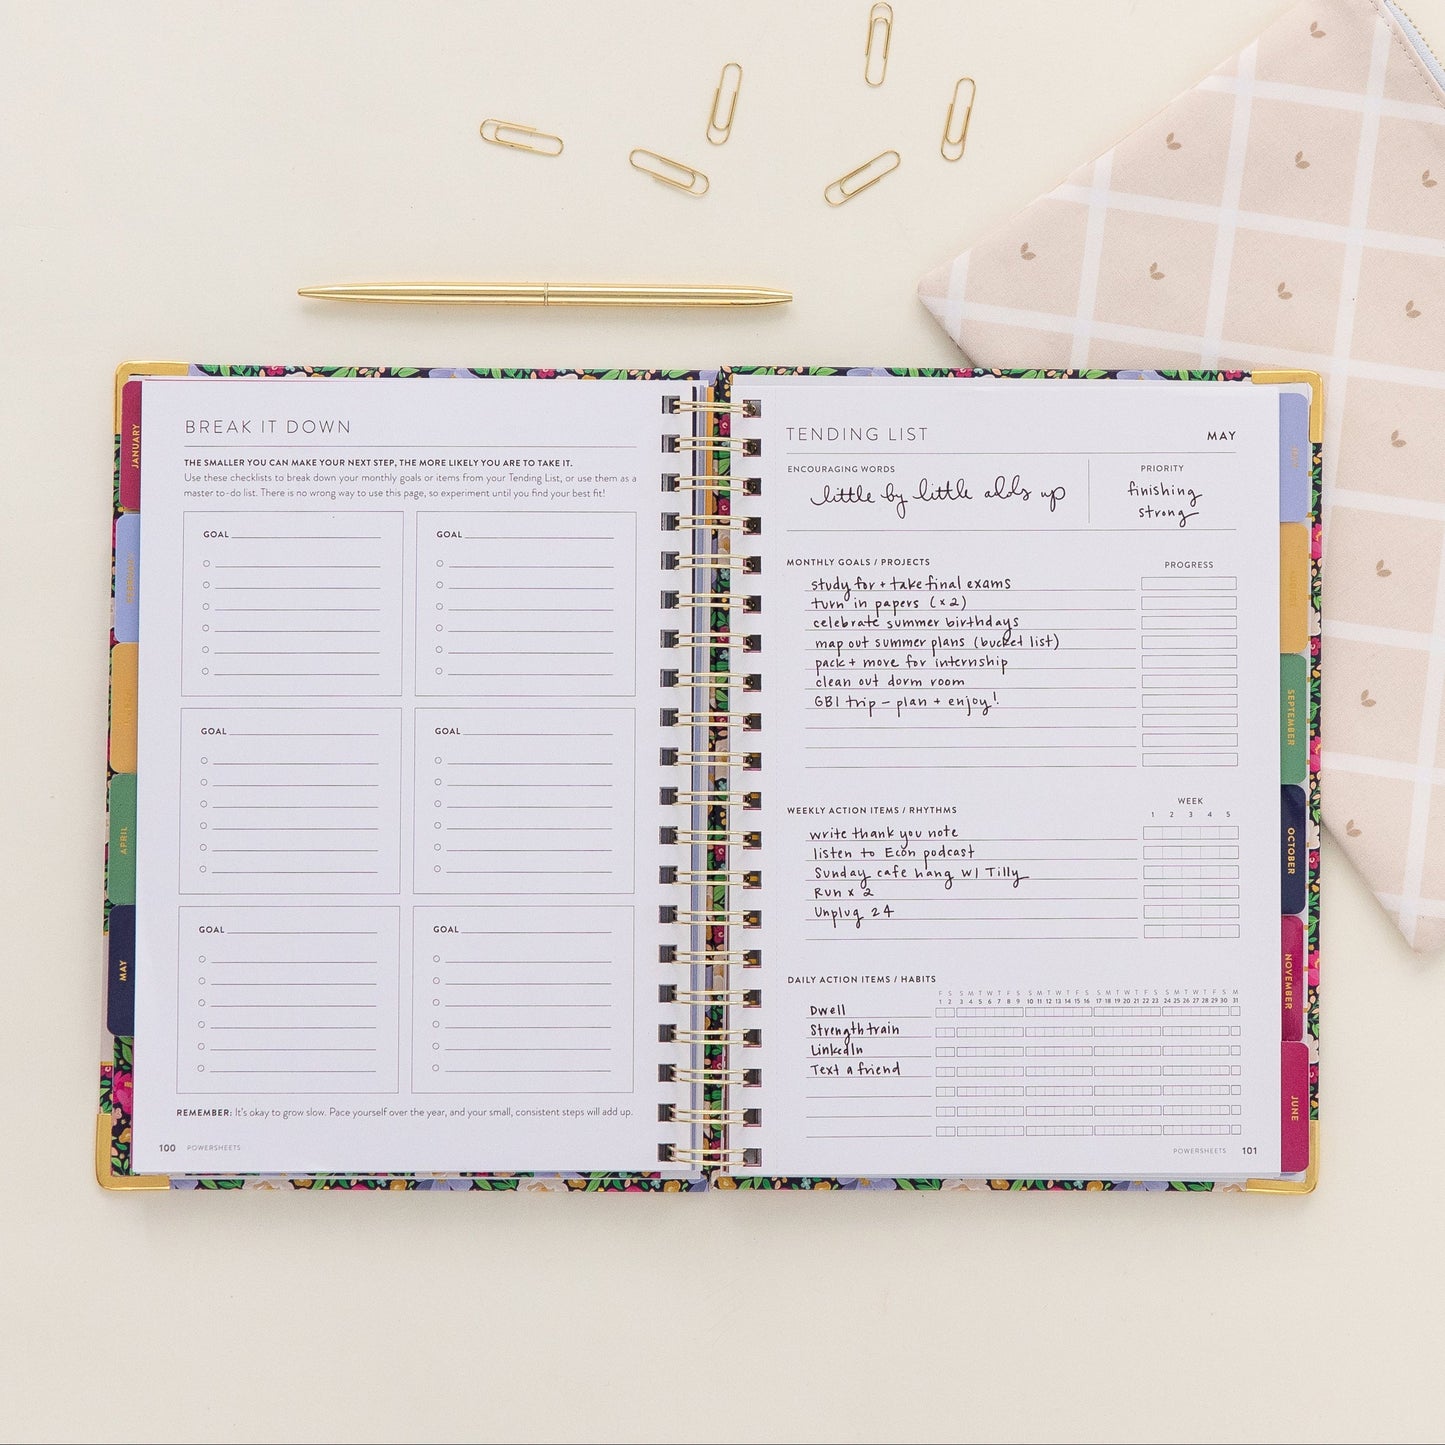 BREAK IT DOWN
THE SMALLER YOU CAN MAKE YOUR NEXT STEP, THE MORE LIKELY YOU ARE TO TAKE IT.
Use these checklists to break down your monthly goals or items from your Tending List, or use them as a
master to-do list. There is no wrong way to use this page, so experiment until you find your best fit!
GOAL
GOAL
GOAL
GOAL
GOAL
GOAL
REMEMBER: It's okay to grow slow. Pace yourself over the year, and your small, consistent steps will add up.
100 POWERSHEETS
JANUARY
APRIL
MAY
TENDING LIST MAY
ENCOURAGING WORDS
little by little adds up
PRIORITY
finishing
strong
MONTHLY GOALS / PROJECTS PROGRESS
study for + take final exams
turn in papers (x2)
celebrate summer birthdays
map out summer plans (bucket list)
pack + move for internship
clean out dorm room
GBI trip - plan + enjoy!
WEEKLY ACTION ITEMS / RHYTHMS WEEK
1 2 3 4 5
write thank you note
listen to Econ podcast
Sunday cafe hang w/ Tilly
Run x 2
Unplug 24
DAILY ACTION ITEMS / HABITS
F S S M T W T F S S M T W T F S S M T W T F S S M T W T F S S M
1 2 3 4 5 6 7 8 9 10 11 12 13 14 15 16 17 18 19 20 21 22 23 24 25 26 27 28 29 30 31
Dwell
Strength train
LinkedIn
Text a friend
POWERSHEETS 101
SEPTEMBER
OCTOBER
NOVEMBER
JUNE